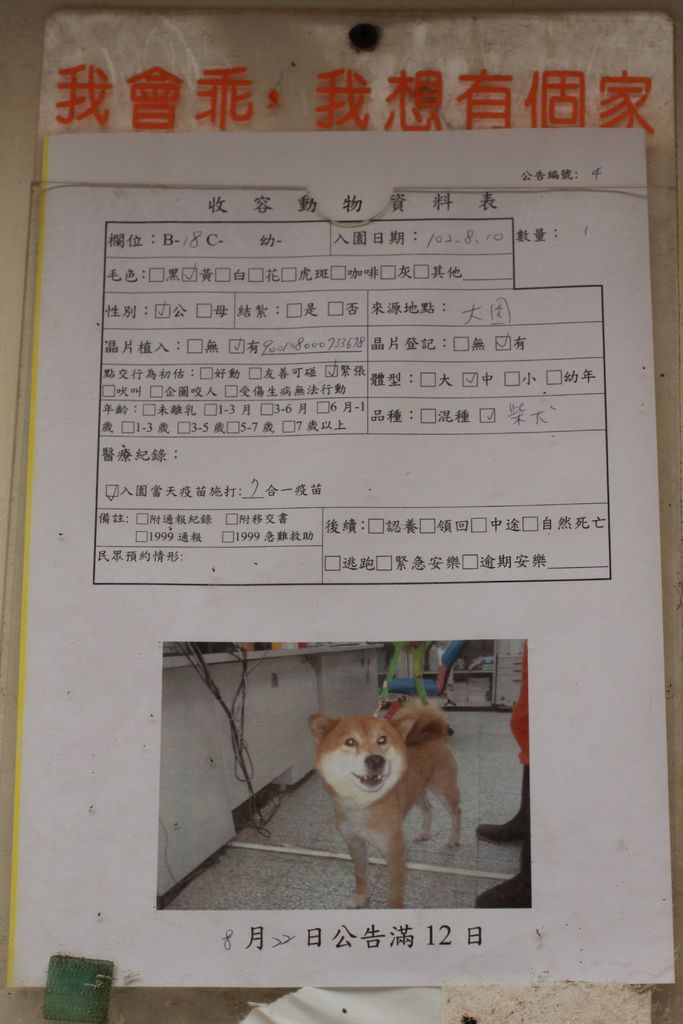 我會乖，我想有個家
公告編號: 4
收容動物資料表
欄位：B-18 C- 幼- 入園日期：102.8.10 數量： 1
毛色：□黑☑黃□白□花□虎斑□咖啡□灰□其他
性別：☑公 □母 結紮：□是 □否 來源地點： 大園
晶片植入：□無 ☑有900108000733678 晶片登記：□無 ☑有
點交行為初估：□好動 □友善可碰 ☑緊張
□吠叫 □企圖咬人 □受傷生病無法行動
體型：□大 ☑中 □小 □幼年
年齡：□未離乳 □1-3 月 □3-6 月 □6 月-1
歲 □1-3 歲 □3-5 歲□5-7 歲 □7 歲以上
品種：□混種 ☑ 柴犬
醫療紀錄：
☑入園當天疫苗施打:7合一疫苗
備註：□附通報紀錄 □附移交書
□1999 通報 □1999 急難救助
民眾預約情形:
後續：□認養□領回□中途□自然死亡
□逃跑□緊急安樂□逾期安樂
8月22日公告滿 12 日